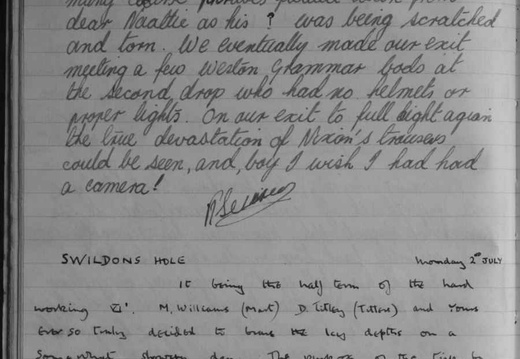 dear Naattie as his ? was being scratched
and torn. We eventually made our exit
meeting a few Weston Grammar bods at
the second drop who had no helmets or
proper lights. On our exit to full light again
the true devastation of Nixon's trousers
could be seen, and, boy I wish I had had
a camera!
SWILDONS HOLE Monday 2nd JULY
It being the half term of the hard
working VI'. M. Williams (Mart) D. Titley (Titters) and Yours
Ever so truly decided to brave the icy depths on a
Somewhat showery day. The purpose of the trip